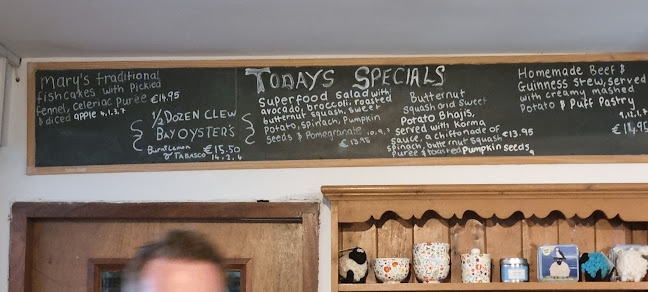 TODAYS SPECIALS
Mary's traditional
fishcakes with Pickled
fennel, celeriac Purée €14.95
& diced apple 4,1,3,7
½ DOZEN CLEW
BAY OYSTER'S
Burnt Lemon
& TABASCO €15.50
14.2.4
Superfood Salad with
avocado, broccoli, roasted
butternut squash, sweet
Potato, Spinach, Pumpkin
Seeds & Pomegranate 10,9,7
€13.95
Butternut
squash and Sweet
Potato Bhajis,
served with Korma
Sauce, a chiffonade of €13.95
spinach, butternut squash
Purée & toasted Pumpkin seeds 9
Homemade Beef &
Guinness stew, served
with creamy mashed
Potato & Puff Pastry
9,1,2,7
€14,95